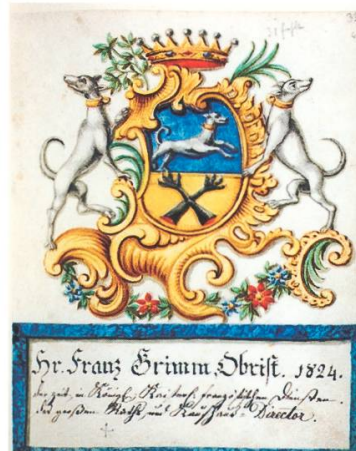 Hr. Franz Grimm, Obrist. 1824.
der zeit, in Königl. Kaiserl. französischen Diensten.
des großen Raths, und Kaufhaus-Director.